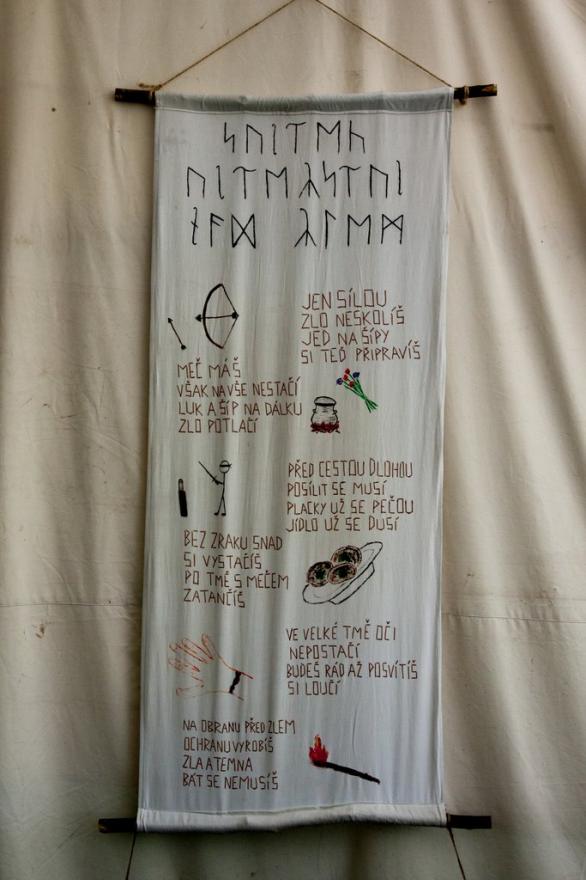 ᛋᚢᛁᛏᛖᚳ
ᚢᛁᛏᛖᛣᛋᛏᚢᛁ
ᚾᚨᛞ ᛣᛚᛖᛗ
JEN SÍLOU
ZLO NESKOLÍŠ
JED NA ŠÍPY
SI TEĎ PŘIPRAVÍŠ
MEČ MÁŠ
VŠAK NA VŠE NESTAČÍ
LUK A ŠÍP NA DÁLKU
ZLO POTLAČÍ
PŘED CESTOU DLOHOU
POSÍLIT SE MUSÍ
PLACKY UŽ SE PEČOU
JÍDLO UŽ SE DUSÍ
BEZ ZRAKU SNAD
SI VYSTAČÍŠ
PO TMĚ S MEČEM
ZATANČÍŠ
VE VELKÉ TMĚ OČI
NEPOSTAČÍ
BUDEŠ RÁD AŽ POSVÍTÍŠ
SI LOUČÍ
NA OBRANU PŘED ZLEM
OCHRANU VYROBÍŠ
ZLA A TEMNA
BÁT SE NEMUSÍŠ